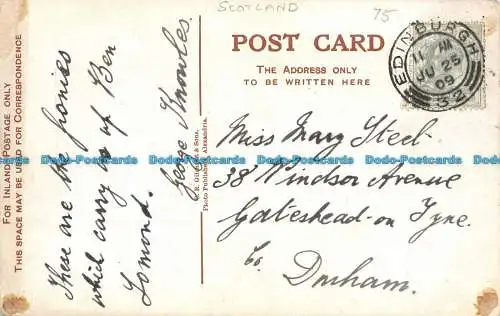 SCOTLAND
75
POST CARD
THE ADDRESS ONLY
TO BE WRITTEN HERE
EDINBURGH
11 AM
JU 25
09
32
FOR INLAND POSTAGE ONLY
THIS SPACE MAY BE USED FOR CORRESPONDENCE
These are the ponies
which carry us up Ben
Lomond.
George Knowles.
& Sons,
Photo Publishers, Alexandria.
Miss Mary Steel
38 Windsor Avenue
Gateshead-on Tyne.
Co. Durham.
Dodo-Postcards Dodo-Postcards Dodo-Postcards Dodo-Postcards Dodo-Postcards